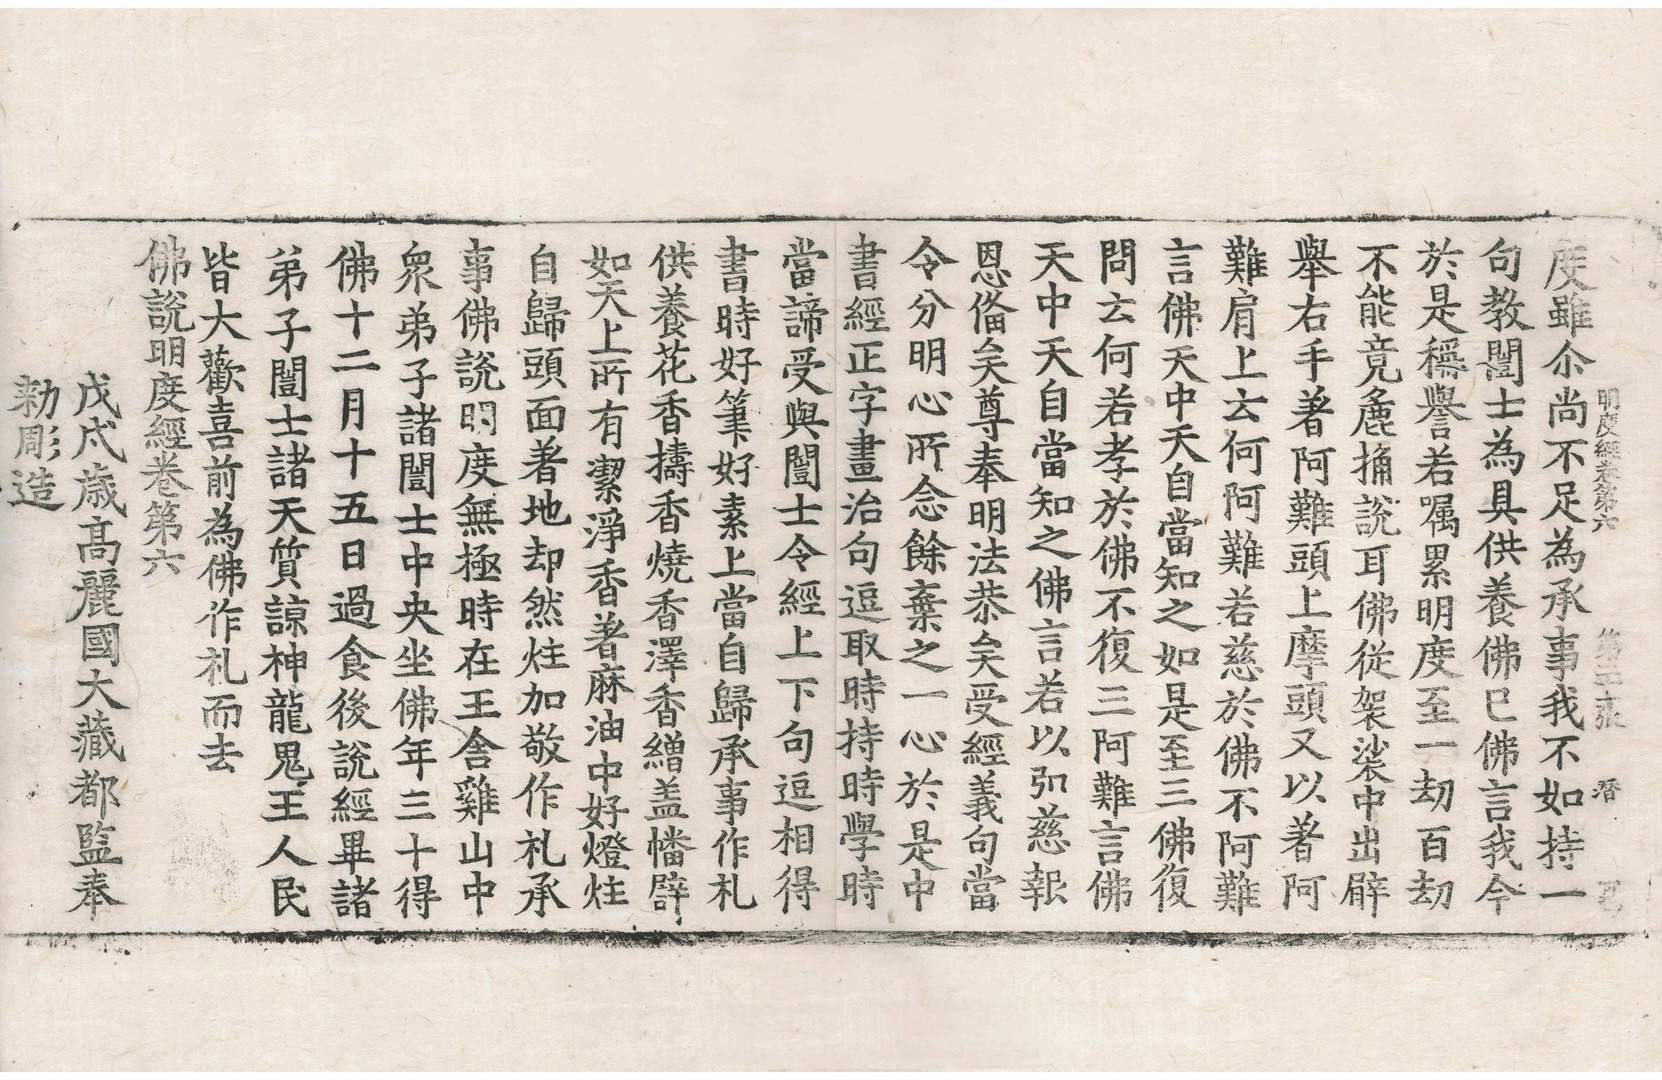 明度經卷第六 第二十張 潜
度雖尒尚不足為承事我不如持一
句教闓士為具供養佛已佛言我今
於是稱譽若嘱累明度至一劫百劫
不能竟麁捔說耳佛從袈裟中出臂
舉右手著阿難頭上摩頭又以著阿
難肩上云何阿難若慈於佛不阿難
言佛天中天自當知之如是至三佛復
問云何若孝於佛不復三阿難言佛
天中天自當知之佛言若以弘慈報
恩俻矣尊奉明法恭矣受經義句當
令分明心所念餘棄之一心於是中
書經正字畫治句逗取時持時學時
當諦受與闓士令經上下句逗相得
書時好筆好素上當自歸承事作礼
供養花香擣香燒香澤香繒盖幡譬
如天上所有潔淨香著麻油中好燈炷
自歸頭面著地却然炷加敬作礼承
事佛說明度無極時在王舍雞山中
衆弟子諸闓士中央坐佛年三十得
佛十二月十五日過食後說經畢諸
弟子闓士諸天質諒神龍鬼王人民
皆大歡喜前為佛作礼而去
佛說明度經卷第六
戊戌歲高麗國大藏都監奉
勑彫造